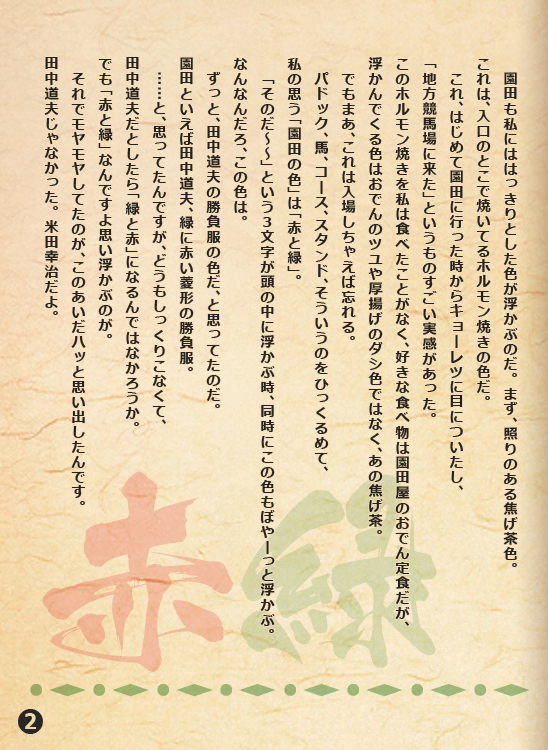 園田も私にははっきりとした色が浮かぶのだ。まず、照りのある焦げ茶色。
これは、入口のとこで焼いてるホルモン焼きの色だ。
これ、はじめて園田に行った時からキョーレツに目についたし、
「地方競馬場に来た」というものすごい実感があった。
このホルモン焼きを私は食べたことがなく、好きな食べ物は園田屋のおでん定食だが、
浮かんでくる色はおでんのツユや厚揚げのダシ色ではなく、あの焦げ茶。
でもまあ、これは入場しちゃえば忘れる。
パドック、馬、コース、スタンド、そういうのをひっくるめて、
私の思う「園田の色」は「赤と緑」。
「そのだ〜〜」という3文字が頭の中に浮かぶ時、同時にこの色もぼやーっと浮かぶ。
なんなんだろ、この色は。
ずっと、田中道夫の勝負服の色だ、と思ってたのだ。
園田といえば田中道夫、緑に赤い菱形の勝負服。
……と、思ってたんですが、どうもしっくりこなくて、
田中道夫だとしたら「緑と赤」になるんではなかろうか。
でも「赤と緑」なんですよ思い浮かぶのが。
それでモヤモヤしてたのが、このあいだハッと思い出したんです。
田中道夫じゃなかった。米田幸治だよ。
緑
赤
2